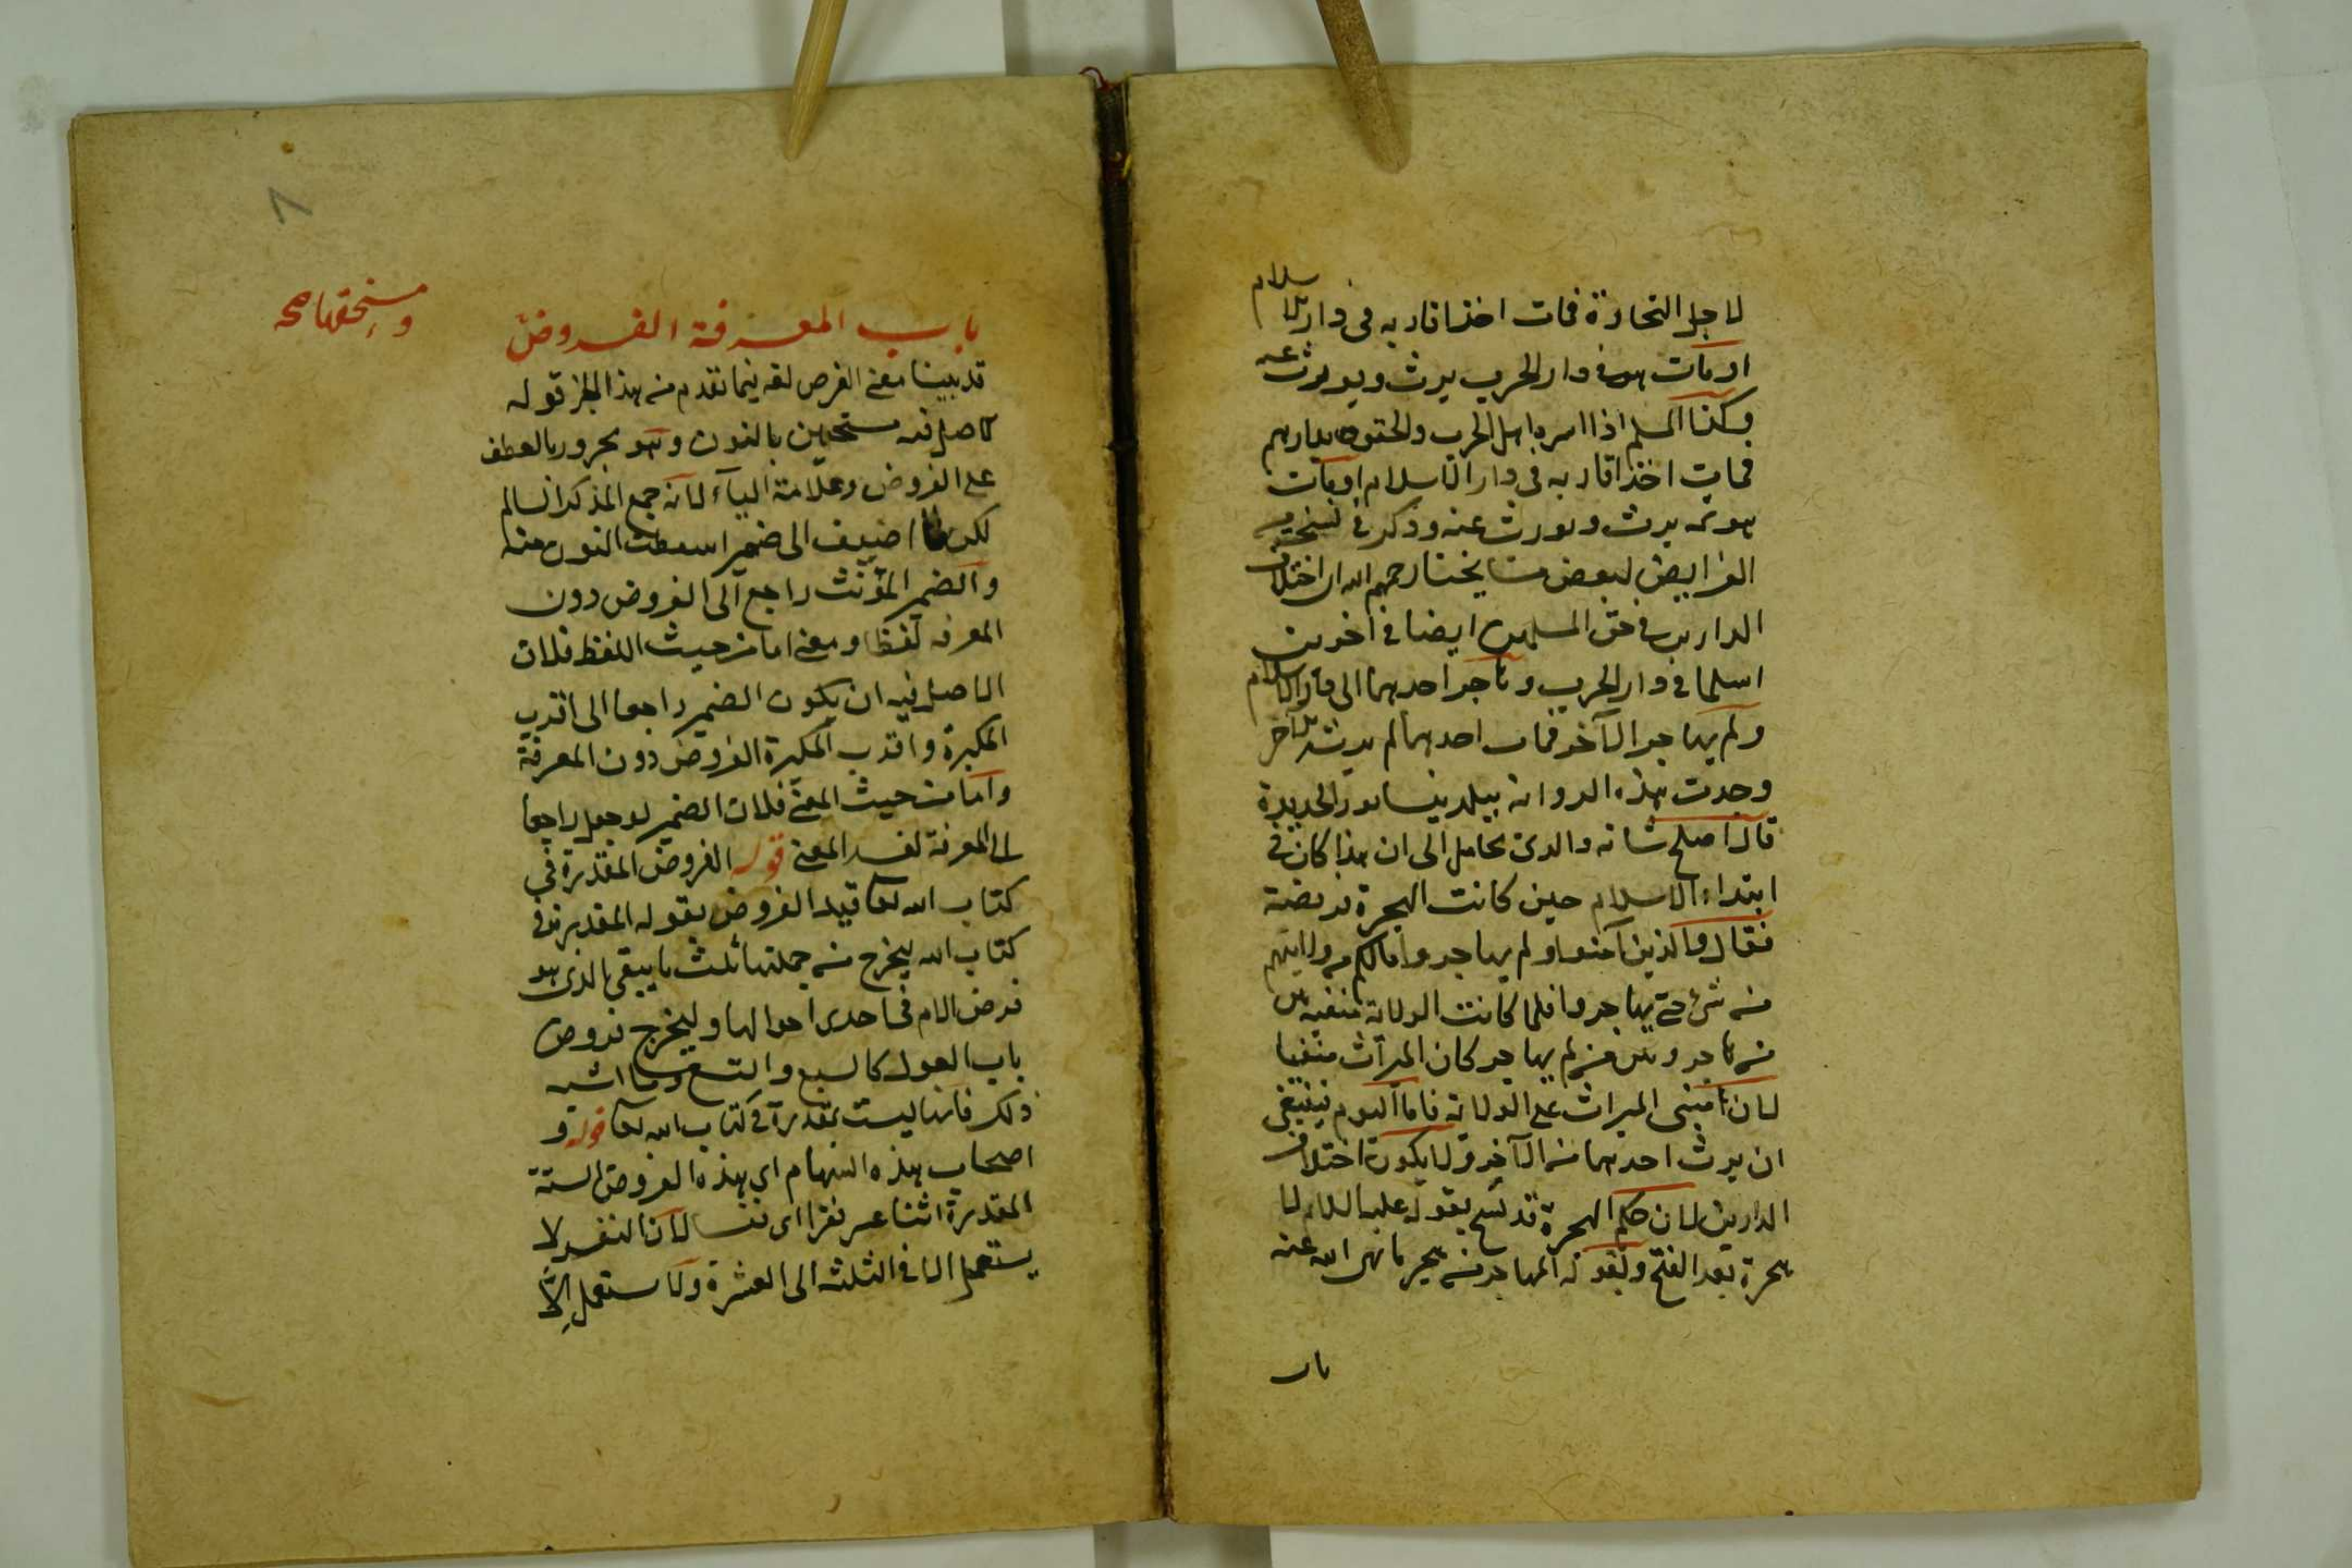 لاجل التجارة فمات احد اقاربه فى دار الاسلام
او مات هو فى دار الحرب يرث ويورث عنه
وكذا المسلم اذا اسره اهل الحرب والحقوه بدارهم
فمات احد اقاربه فى دار الاسلام او مات
هو ثمه يرث ويورث عنه وذكر فى نسخة
الفرايض لبعض مشايخنا رحمهم الله ان اختلاف
الدارين فى حق المسلمين ايضا فى اخوين
اسلما فى دار الحرب وهاجر احدهما الى دار الاسلام
ولم يهاجر الآخر فمات احدهما لم يرثه الآخر
وجدت هذه الرواية
قال اصلح شانه والدى ان هذا كان فى
ابتداء الاسلام حين كانت الهجرة فريضة
فقال والذين آمنوا ولم يهاجروا مالكم من ولايتهم
من شئ حتى يهاجروا فلما كانت الولاية منفية بين
من هاجر وبين من لم يهاجر كان الميراث منفيا
لان مبنى الميراث على الولاية فاما اليوم فينبغى
ان يرث احدهما من الآخر ولا يكون اختلاف
الدارين لان حكم الهجرة قد نسخ بقوله عليه السلام لا
هجرة بعد الفتح وبقوله المهاجر من هجر ما نهى الله عنه
باب
باب المعرفة الفروض
ومستحقيها صح
قد بينا معنى الفرض لغه فيما تقدم من هذا الجز قوله
الاصل فيه مستحقين بالنون وهو مجرور بالعطف
على الفروض وعلامة الياء لانه جمع المذكر السالم
لكن لما اضيف الى ضمير اسقطت النون منه
والضمير المؤنث راجع الى الفروض دون
المعرفه لفظا ومعنى اما من حيث اللفظ فلان
الاصل فيه ان يكون الضمير راجعا الى اقرب
واقرب الفروض دون المعرفة
واما من حيث المعنى فلان الضمير لو جعل راجعا
الى المعرفة لفسد المعنى قوله الفروض المقدرة فى
كتاب الله تعا قيد الفروض بقوله المقدرة فى
كتاب الله ليخرج من جملتها ثلث ما يبقى الذى هو
فرض الام فى احدى احوالها وليخرج فروض
باب العول كالسبع والتسع وما اشبه
ذلك فانها ليست بمقدرة فى كتاب الله تعا قوله و
اصحاب هذه السهام اى هذه الفروض الستة
المقدرة اثنا عشر نفرا اى نفسا لان النفر لا
يستعمل الا فى الثلثه الى العشرة ولا يستعمل الا